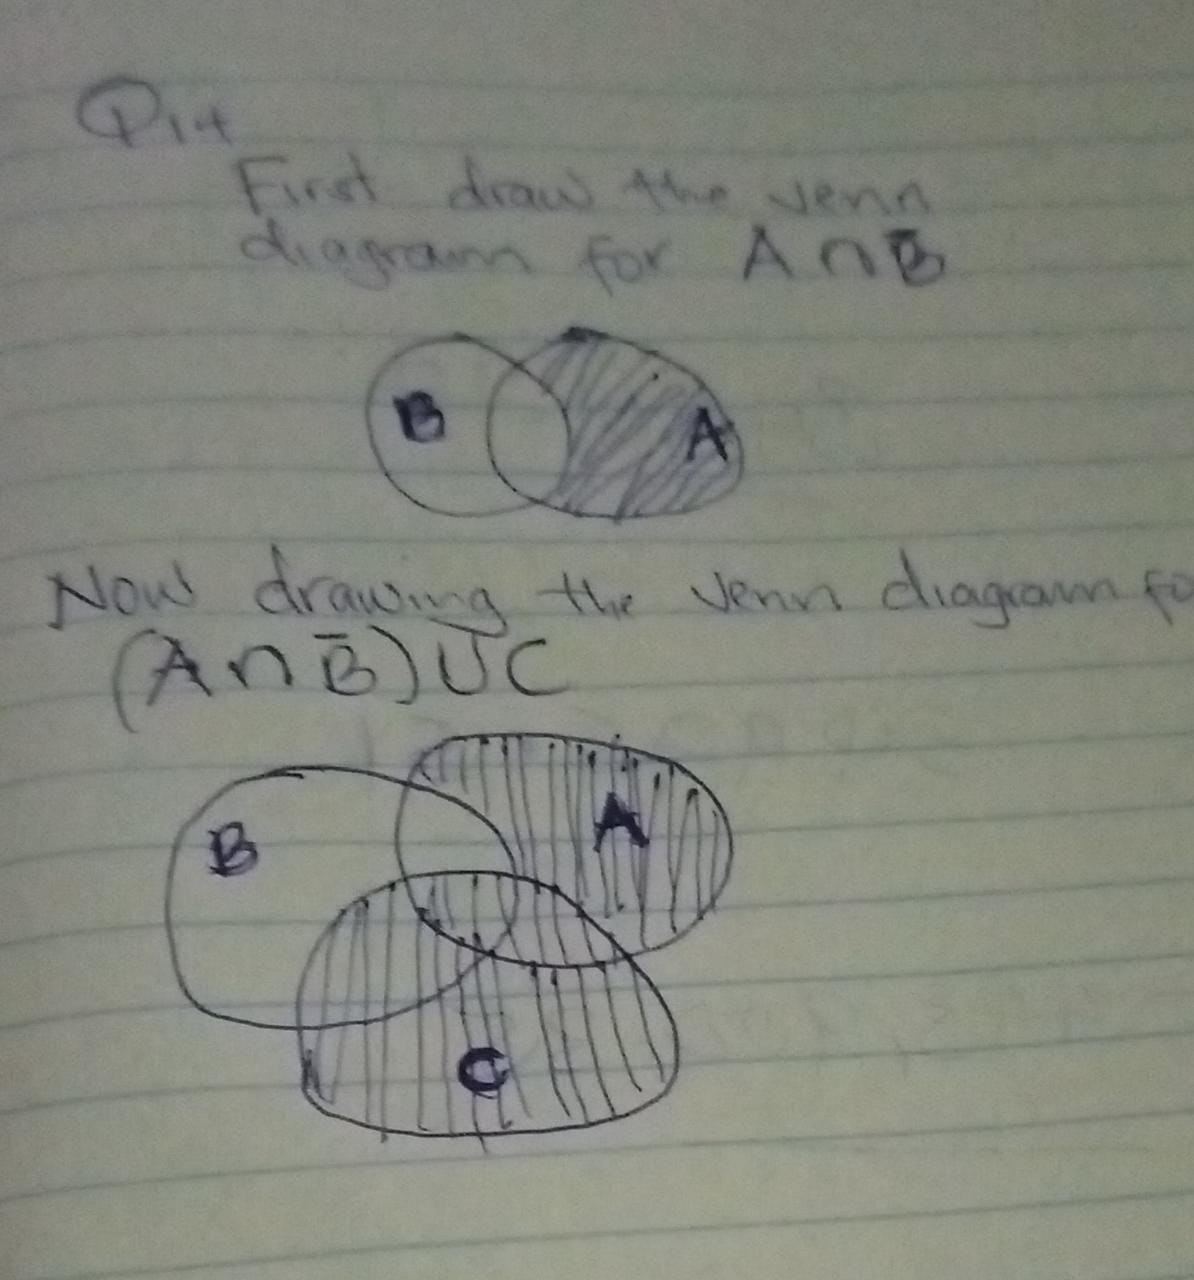 Q14
First draw the venn
diagram for A ∩ B̅
B
A
Now drawing the venn diagram fo
(A ∩ B̅) ∪ C
A
B
C